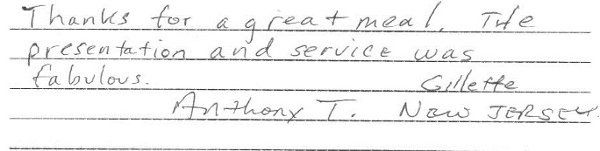 Thanks for a great meal. THe
presentation and service was
fabulous. Gillette
Anthony T. NEW JERSEY.